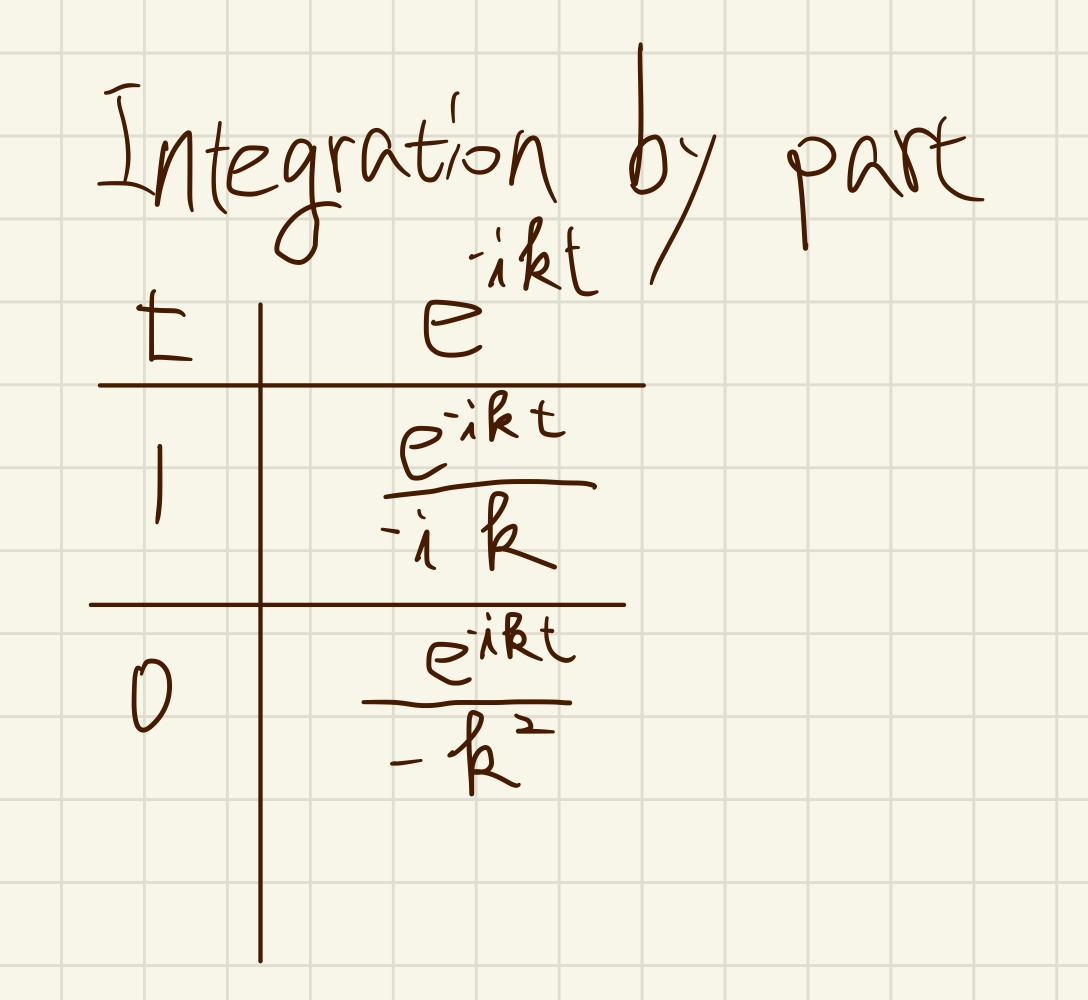 Integration by part
t | e^{-ikt}
1 | \frac{e^{-ikt}}{-ik}
0 | \frac{e^{-ikt}}{-k^2}